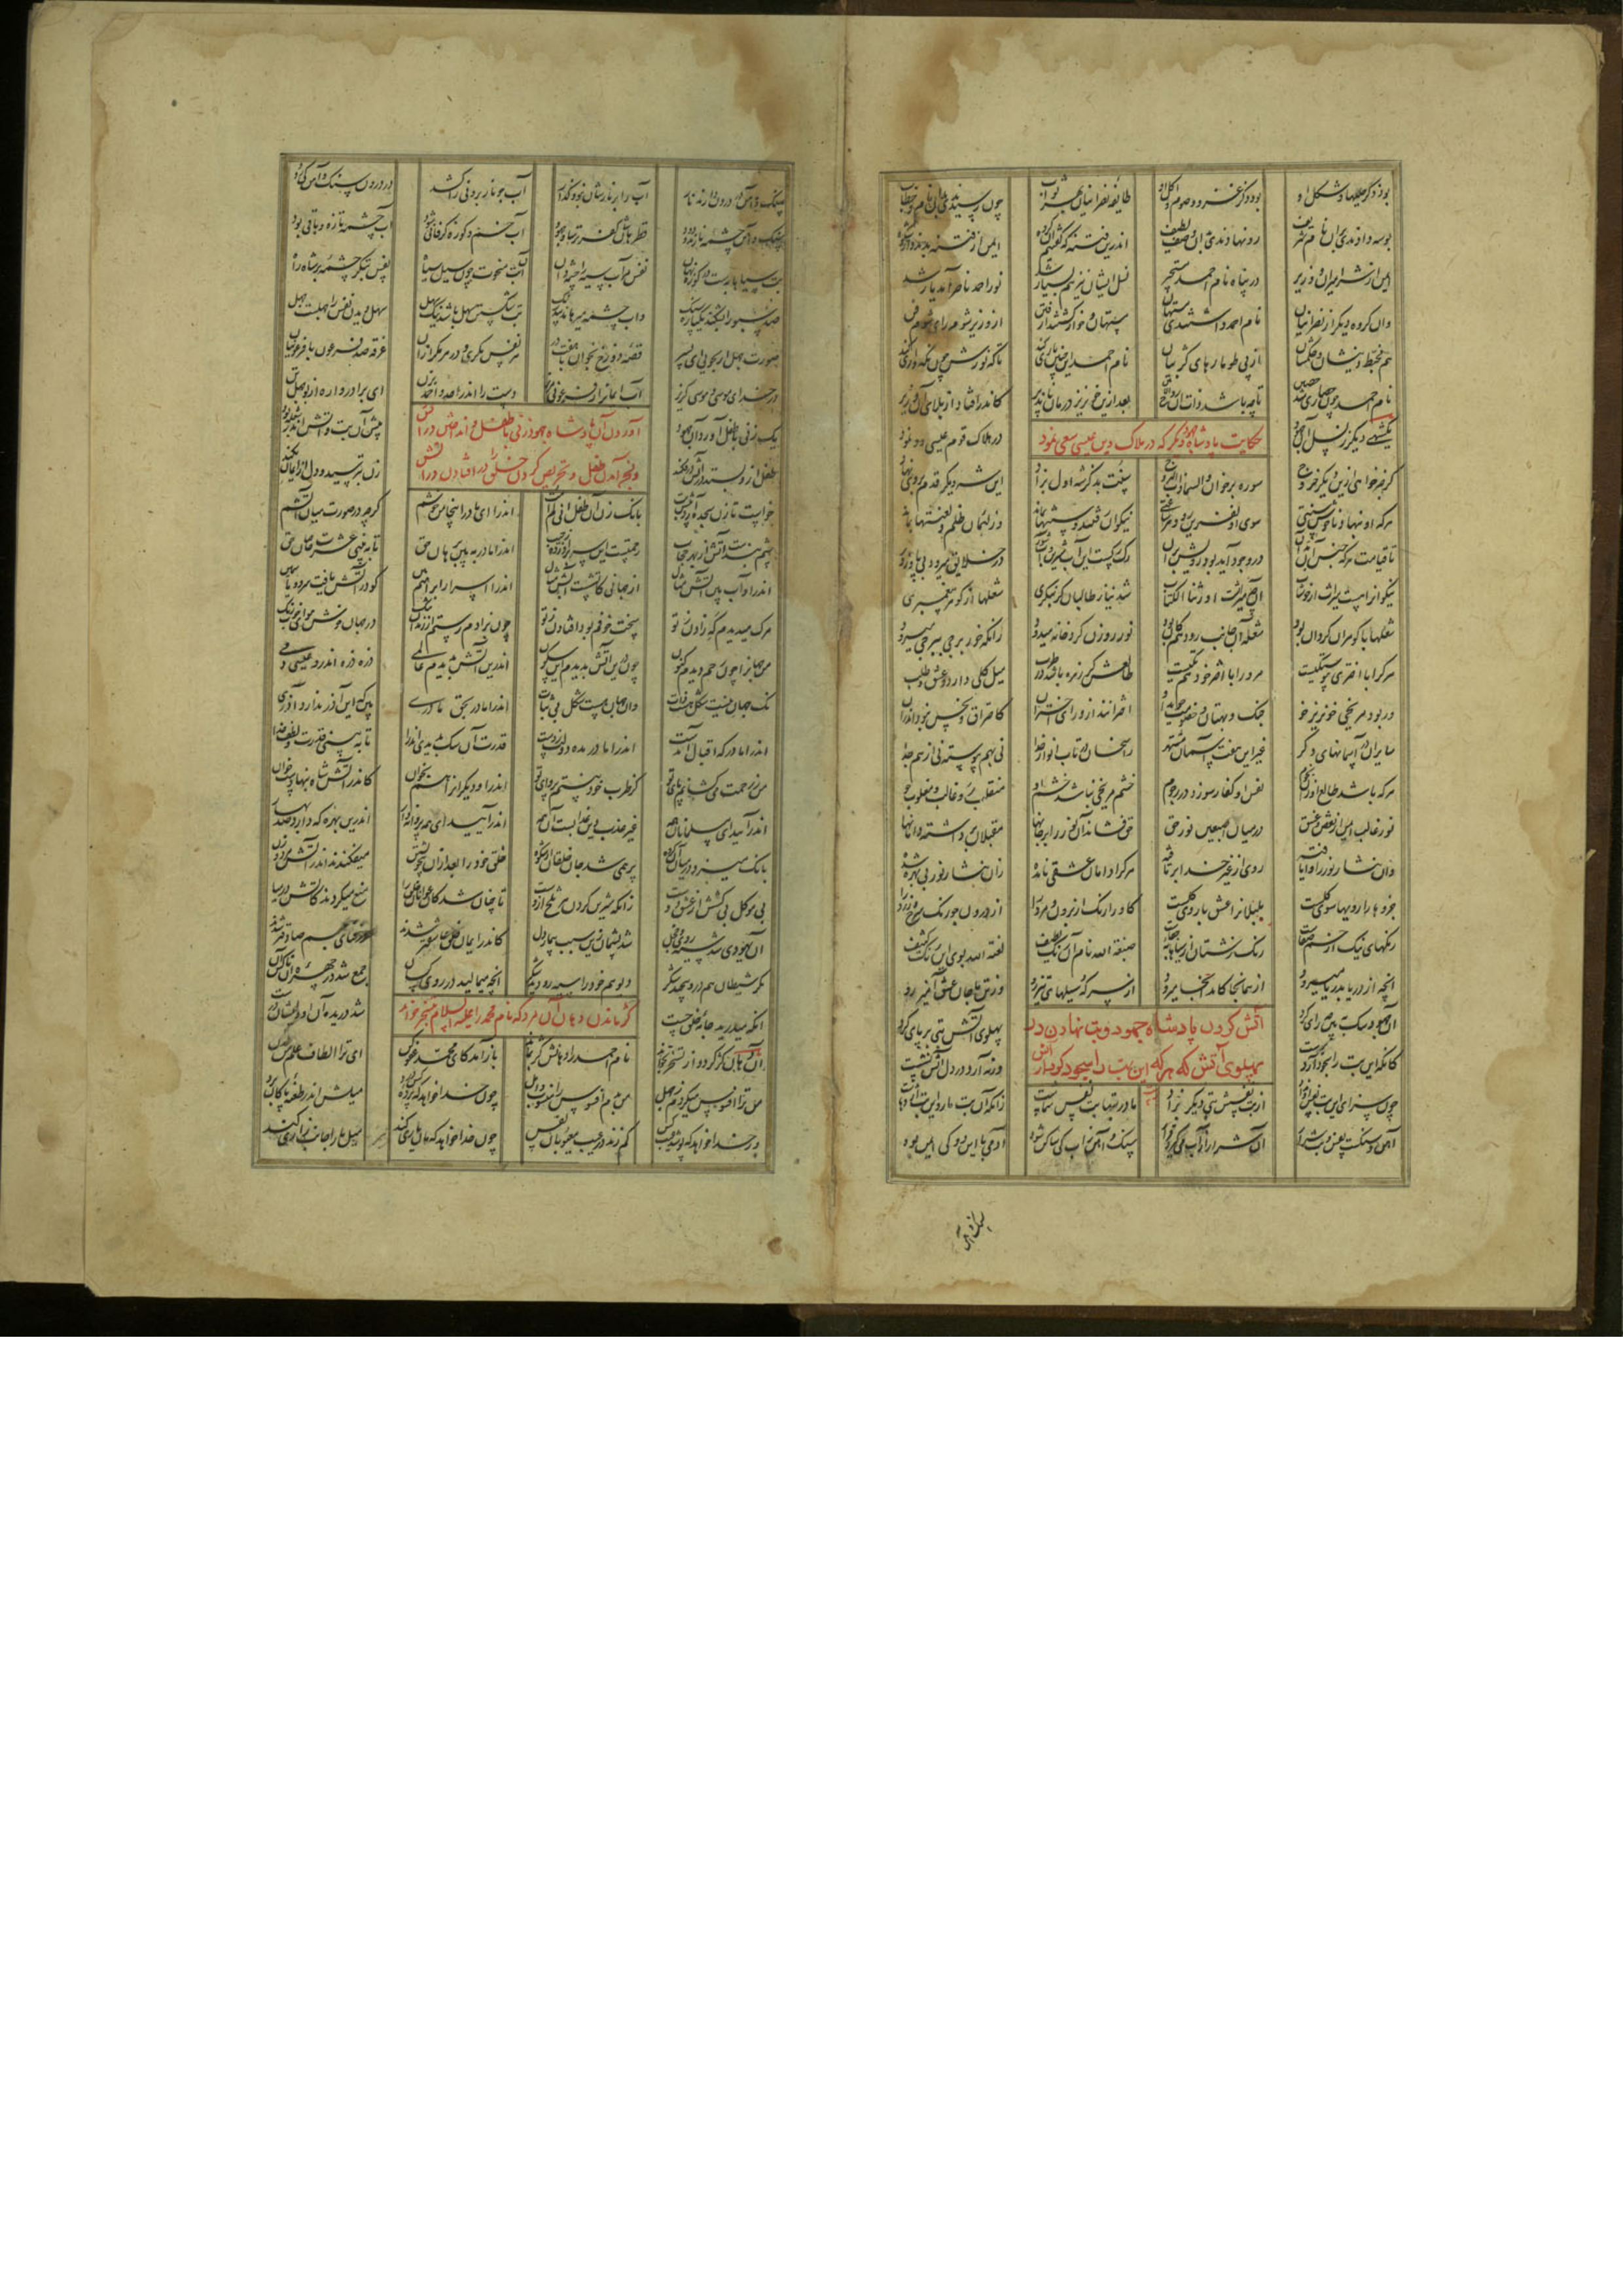 بود ذکر حلیها و شکل او بود ذکر غزو و صوم و اکل او طایفه نصرانیان بهر ثواب چون رسیدندی بدان نام و خطاب
بوسه دادندی بران نام شریف رو نهادندی بدان وصف لطیف اندرین فتنه که گفتیم آن گروه ایمن از فتنه بدند و از شکوه
ایمن از شر امیران و وزیر در پناه نام احمد مستجیر نسل ایشان نیز هم بسیار شد نور احمد ناصر آمد یار شد
وان گروه دیگر از نصرانیان نام احمد داشتندی مستهان مستهان و خوار گشتند از فتن از وزیر شوم رای شوم فن
هم مخبط دینشان و حکمشان از پی طومارهای کژ بیان نام احمد این چنین یاری کند تا که نورش چون نگهداری کند
نام احمد چون حصاری شد حصین تا چه باشد ذات آن روح الامین بعد ازین خونریز درمان ناپذیر کاندر افتاد از بلای آن وزیر
حکایت پادشاه جهود دیگر که در هلاک دین عیسی سعی نمود
یک شه دیگر ز نسل آن جهود در هلاک قوم عیسی رو نمود
گر خبر خواهی ازین دیگر خروج سوره برخوان والسما ذات البروج سنت بد کز شه اول بزاد این شه دیگر قدم بر وی نهاد
هر که او بنهاد ناخوش سنتی سوی او نفرین رود هر ساعتی نیکوان رفتند و سنتها بماند وز لئیمان ظلم و لعنتها بماند
تا قیامت هر که جنس آن بدان در وجود آید بود رویش بدان رگ رگست این آب شیرین و آب شور در خلایق میرود
نیکوانرا هست میراث از خوشاب آن چه میراثست اورثنا الکتاب شد نیاز طالبان گر بنگری شعلها از گوهر پیغمبری
شعلها با گوهران گردان بود شعله آن جانب رود هم کان بود نور روزن گرد خانه میدود زانکه خور برجی ببرجی میرود
هر کرا با اختری پیوستگیست مر ورا با اختر خود هم تگیست طالعش گر زهره باشد در طرب میل کلی دارد و عشق و طلب
ور بود مریخی خونریز خو جنگ و بهتان و خصومت جوید او اخترانند از ورای اختران کاحتراق و نحس نبود اندران
سایران در آسمانهای دگر غیر این هفت آسمان مشتهر راسخان در تاب انوار خدا نی بهم پیوسته نی از هم جدا
هر که باشد طالع او زان نجوم نفس او کفار سوزد در رجوم خشم مریخی نباشد خشم او منقلب رو غالب و مغلوب خو
نور غالب ایمن از نقص و غسق در میان اصبعین نور حق حق فشاند آن نور را بر جانها مقبلان برداشته دامانها
وان نثار نور را وا یافته روی از غیر خدا بر تافته هر کرا دامان عشقی نابده زان نثار نور بی بهره شده
جزوها را رویها سوی کلست بلبلانرا عشق با روی گلست گاو را رنگ از برون و مرد را از درون جو رنگ سرخ و زرد را
رنگهای نیک از خم صفاست رنگ زشتان از سیاهابه جفاست صبغة الله نام آن رنگ لطیف لعنة الله بوی این رنگ کثیف
آنچه از دریا بدریا میرود از همانجا کامد آنجا میرود از سر که سیلهای تیز رو وز تن ما جان عشق آمیز رو
آتش کردن پادشاه جهود و بت نهادن در
پهلوی آتش که هر که این بت را سجود کند از آتش
آن جهود سگ ببین چه رای کرد پهلوی آتش بتی بر پای کرد
کانکه این بت را سجود آرد برست ورنه آرد در دل آتش نشست
چون سزای این بت نفس او نداد از بت نفسش بتی دیگر بزاد مادر بتها بت نفس شماست زانکه آن بت مار و این بت اژدهاست
آهن و سنگست نفس و بت شرار آن شرار از آب میگیرد قرار سنگ و آهن زاب کی ساکن شود آدمی با این دو کی ایمن بود
سنگ و آهن
سنگ و آهن در درون دارند نار آب را بر نارشان نبود گذار آب جو نار برونی را کشد در درون سنگ و آهن کی رود
سنگ و آهن چشمه نارند و دود قطرهاشان کفر ترسا و جهود آب خم و کوزه گر فانی شود آب چشمه تازه و باقی بود
بت سیاه آبست در کوزه نهان نفس مر آب سیه را چشمه دان آن بت منحوت چون سیل سیاه نفس بتگر چشمه بر شاه راه
صد سبو را بشکند یکپاره سنگ واب چشمه میرهاند بی درنگ بت شکستن سهل باشد نیک سهل سهل دیدن نفس را جهلست جهل
صورت نفس ار بجویی ای پسر قصه دوزخ بخوان با هفت در هر نفس مکری و در هر مکر زان غرقه صد فرعون با فرعونیان
در خدای موسی و موسی گریز آب ایمانرا ز فرعونی مریز دست را اندر احد و احمد بزن ای برادر واره از بوجهل تن
آوردن آن پادشاه جهود زنی با طفل و انداختن در آتش
و بسخن آمدن طفل و تحریص کردن خلق را در افتادن در آتش
یک زنی با طفل آورد آن جهود پیش آن بت و آتش اندر شعله بود
طفل ازو بستد در آتش در فکند زن بترسید و دل از ایمان بکند
خواست تا زن سجده آرد پیش بت بانگ زد آن طفل انی لم امت اندر آ ای مادر اینجا من خوشم گرچه در صورت میان آتشم
چشم بندست آتش از بهر حجاب رحمتست این سر برآورده ز جیب اندر آ مادر ببین برهان حق تا ببینی عشرت خاصان حق
اندر آ و آب بین آتش مثال از جهانی کاتشست آبش مثال اندر آ اسرار ابراهیم بین کو در آتش یافت سرو و یاسمین
مرگ میدیدم گه زادن ز تو سخت خوفم بود افتادن ز تو چون بزادم رستم از زندان تنگ در جهان خوش هوای خوب رنگ
من جهانرا چون رحم دیدم کنون چون درین آتش بدیدم این سکون اندرین آتش بدیدم عالمی ذره ذره اندرو عیسی دمی
نک جهان نیست شکل هست ذات وان جهان هست شکل بی ثبات اندر آ مادر بحق مادری بین که این آذر ندارد آذری
اندر آ مادر که اقبال آمدست اندر آ مادر مده دولت ز دست قدرت آن سگ بدیدی اندر آ تا ببینی قدرت و لطف خدا
من ز رحمت می کشانم پای تو کز طرب خود نیستم پروای تو اندر آ و دیگرانرا هم بخوان کاندر آتش شاه بنهادست خوان
اندر آیید ای مسلمانان همه غیر عذب دین عذابست آن همه اندر آیید ای همه پروانه وار اندرین بهره که دارد صد بهار
بانگ میزد در میان آن گروه پر همی شد جان خلقان از شکوه خلق خود را بعد ازان بی خویشتن میفکندند اندر آتش مرد و زن
بی موکل بی کشش از عشق دوست زانکه شیرین کردن هر تلخ ازوست تا چنان شد کان عوانان خلق را منع میکردند کاتش در میا
آن یهودی شد سیه روی و خجل شد پشیمان زین سبب بیمار دل کاندر ایمان خلق عاشقتر شدند در فنای جسم صادق تر شدند
مکر شیطان هم درو پیچید شکر دیو هم خود را سیه رو دید شکر آنچه میمالید در روی کسان جمع شد در چهره آن ناکس آن
آنکه میدرید جامه خلق چست شد دریده آن او ایشان درست
کژ ماندن دهان آن مرد که نام محمد را علیه السلام بتسخر خواند
آن دهان کژ کرد و از تسخر بخواند نام احمد را دهانش کژ بماند باز آمد کای محمد عفو کن ای ترا الطاف علم من لدن
من ترا افسوس میکردم ز جهل من بدم افسوس را منسوب و اهل چون خدا خواهد که پرده کس درد میلش اندر طعنه پاکان برد
ور خدا خواهد که پوشد عیب کس کم زند در عیب معیوبان نفس چون خدا خواهد که مان یاری کند میل ما را جانب زاری کند